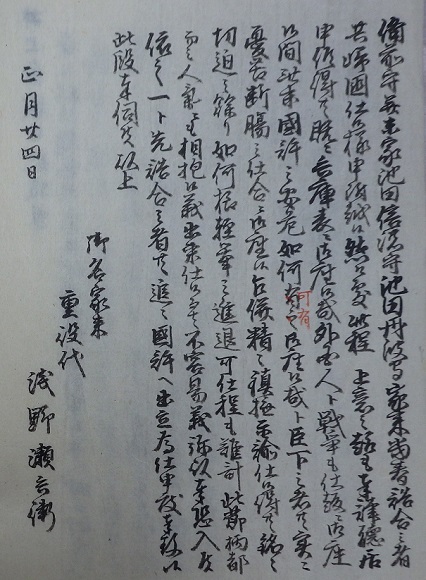 備前守并家池田信濃守池田丹波守家来当春詰合之者
共帰国仕候様申越候然ル処此程 上意之趣も奉謹聴居
申候得共既ニ兵庫表ニ御座候哉外国人ト戦争も仕ニ御座
候間此末国許之安危如何ニ御座候哉ト臣下之者共実ニ
何有
憂苦断腸之仕合ニ御座候乍併精々鎮撫示諭仕候得共銘々
切迫之余り如何様軽挙之進退可仕程も難計此節柄都
而之人気ニも相拘候義出来仕候而ハ不容易義弥以奉恐入候
依之一ト先詰合之者共追々国許へ出立為仕申度奉存候
此段奉伺候以上
正月廿四日
御名家来
重役代
浅野瀬兵衛